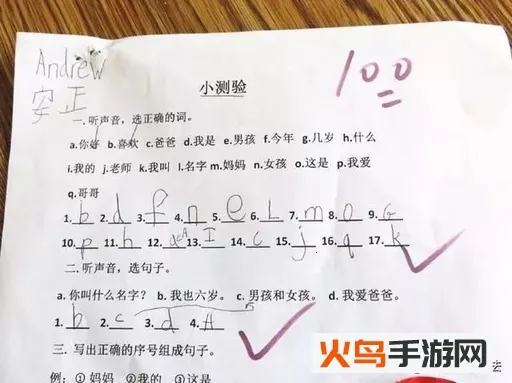 Andrew
安正
100
小测验
一.听声音,选正确的词。
a.你好 b.喜欢 c.爸爸 d.我是 e.男孩 f.今年 g.几岁 h.什么
i.我的 j.老师 k.我叫 l.名字 m.妈妈 n.女孩 o.这是 p.我爱
q.哥哥
1. b 2. d 3. f 4. n 5. e 6. L 7. m 8. o 9. G
10. p 11. h 12. a 13. I 14. c 15. j 16. q 17. k
二.听声音,选句子。
a. 你叫什么名字? b. 我也六岁。 c. 男孩和女孩。 d. 我爱爸爸。
1. b 2. c 3. d 4. A
三. 写出正确的序号组成句子。
例:①妈妈 ②我的 ③这是
火鸟手游网
去